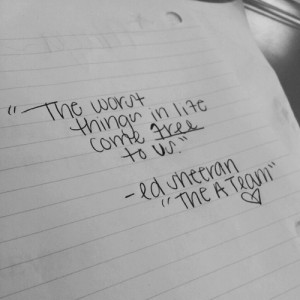 "The worst
things in life
come free
to us."
-ed sheeran
"The A Team"